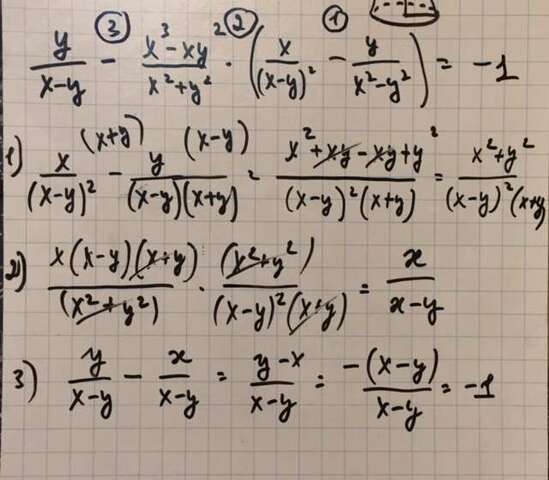 ③ ② ①
y/(x-y) - (x³-xy²)/(x²+y²) · (x/(x-y)² - y/(x²-y²)) = -1
1) x (x+y)/(x-y)² - y (x-y)/((x-y)(x+y)) = (x²+xy-xy+y²)/((x-y)²(x+y)) = (x²+y²)/((x-y)²(x+y))
2) x(x-y)(x+y)/(x²+y²) · (x²+y²)/((x-y)²(x+y)) = x/(x-y)
3) y/(x-y) - x/(x-y) = (y-x)/(x-y) = -(x-y)/(x-y) = -1